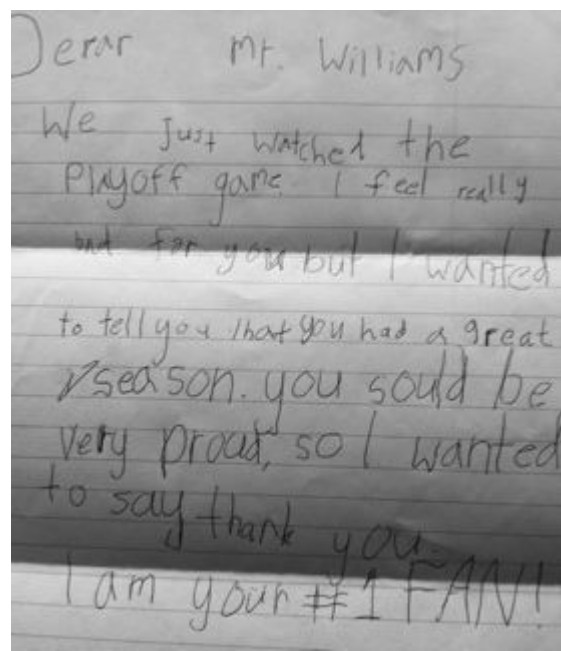 Derar Mr. Williams
We Just watched the
Playoff game. I feel really
bad for you but I wanted
to tell you that you had a great
season. you sould be
very proud, so I wanted
to say thank you.
I am your #1 FAN!